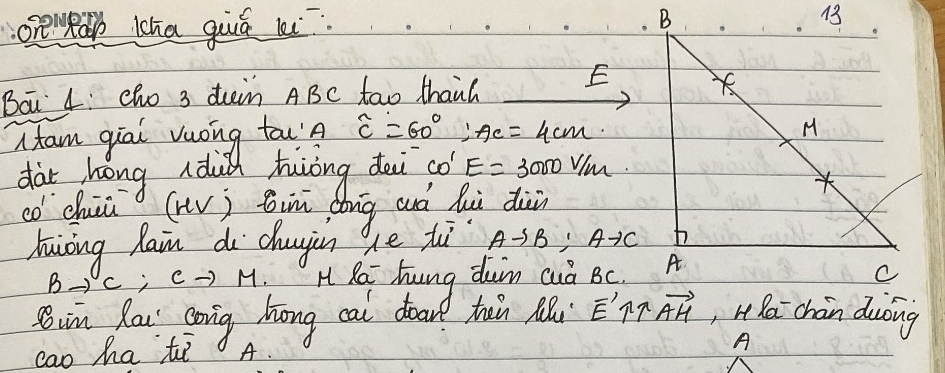 Ôn tập ktra giữa kì
13
Bài 1. cho 3 điểm ABC tạo thành
1 tam giác vuông tại A Ĉ = 60° ; AC = 4cm.
đặt trong 1 điện trường đều có E = 3000 V/m.
có chiều (HV) tìm công của lực điện
trường làm di chuyển 1e từ A→B ; A→C
B→C ; C→M. M là trung điểm của BC.
Tìm lại công trong các đoạn trên khi E ↑↑ AH, H là chân đường
cao hạ từ A.
E
B
M
A
C
A